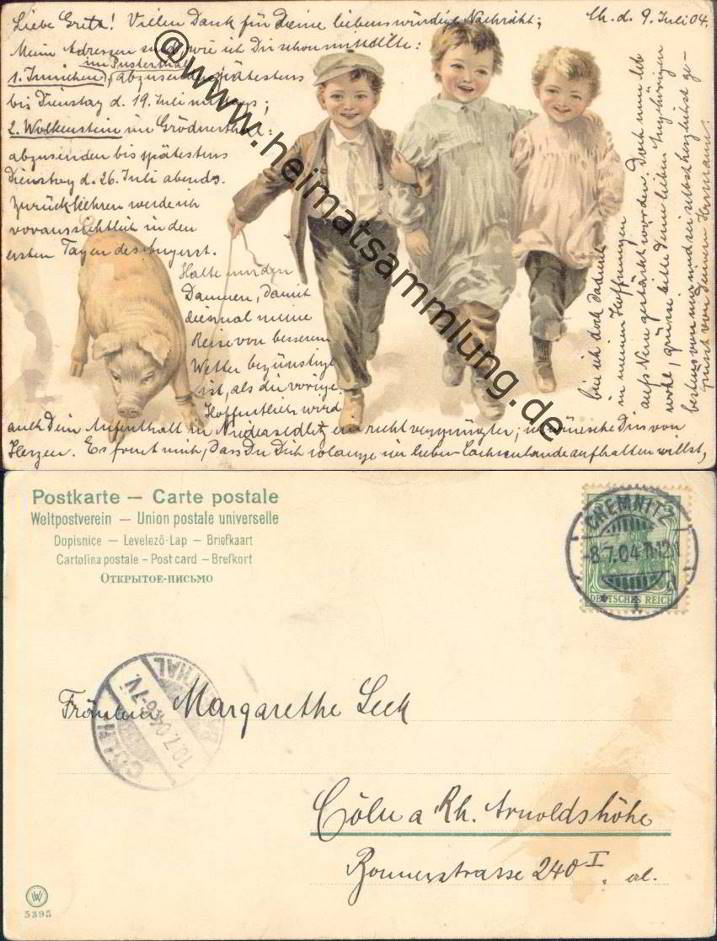 Liebe Grete! Vielen Dank für Deine liebenswürdige Nachricht;
Ch. d. 9. Juli 04.
Meine Adressen sind, wie ich Dir schon mitteilte:
im Pusterthal
1. Innichen, abzusenden spätestens
bis Dienstag d. 19. Juli mittags;
2. Wolkenstein im Grödnerthal:
abzusenden bis spätestens
Dienstag d. 26. Juli abends.
Zurückkehren werde ich
voraussichtlich in den
ersten Tagen des August.
Halte mir den
Daumen, damit
diesmal meine
Reise von besserem
Wetter begünstigt
ist, als die vorige.
Hoffentlich wird
auch Dein Aufenthalt in Niedersedlitz ein recht vergnügter; ich wünsche Dir's von
Herzen. Es freut mich, dass Du Dich solange im lieben Sachsenlande aufhalten willst,
bin ich doch dadurch
in meinen Hoffnungen
aufs Neue gestärkt worden. Doch nun leb
wohl, grüsse bitte Deine lieben Angehörigen
bestens von mir und sei selbst herzlichst ge-
grüsst von Deinem Hermann.
@www.heimatsammlung.de
Postkarte — Carte postale
Weltpostverein — Union postale universelle
Dopisnice — Levelező-Lap — Briefkaart
Cartolina postale — Post card — Brefkort
Открытое-письмо
CHEMNITZ
8.7.04 11-12
1
DEUTSCHES REICH
CÖLN
10.7.04 6-7V.
THAL
Fräulein Margarethe Leck
Cöln a Rh. Arnoldshöhe
Bonnerstrasse 240 I. al.
W
5395